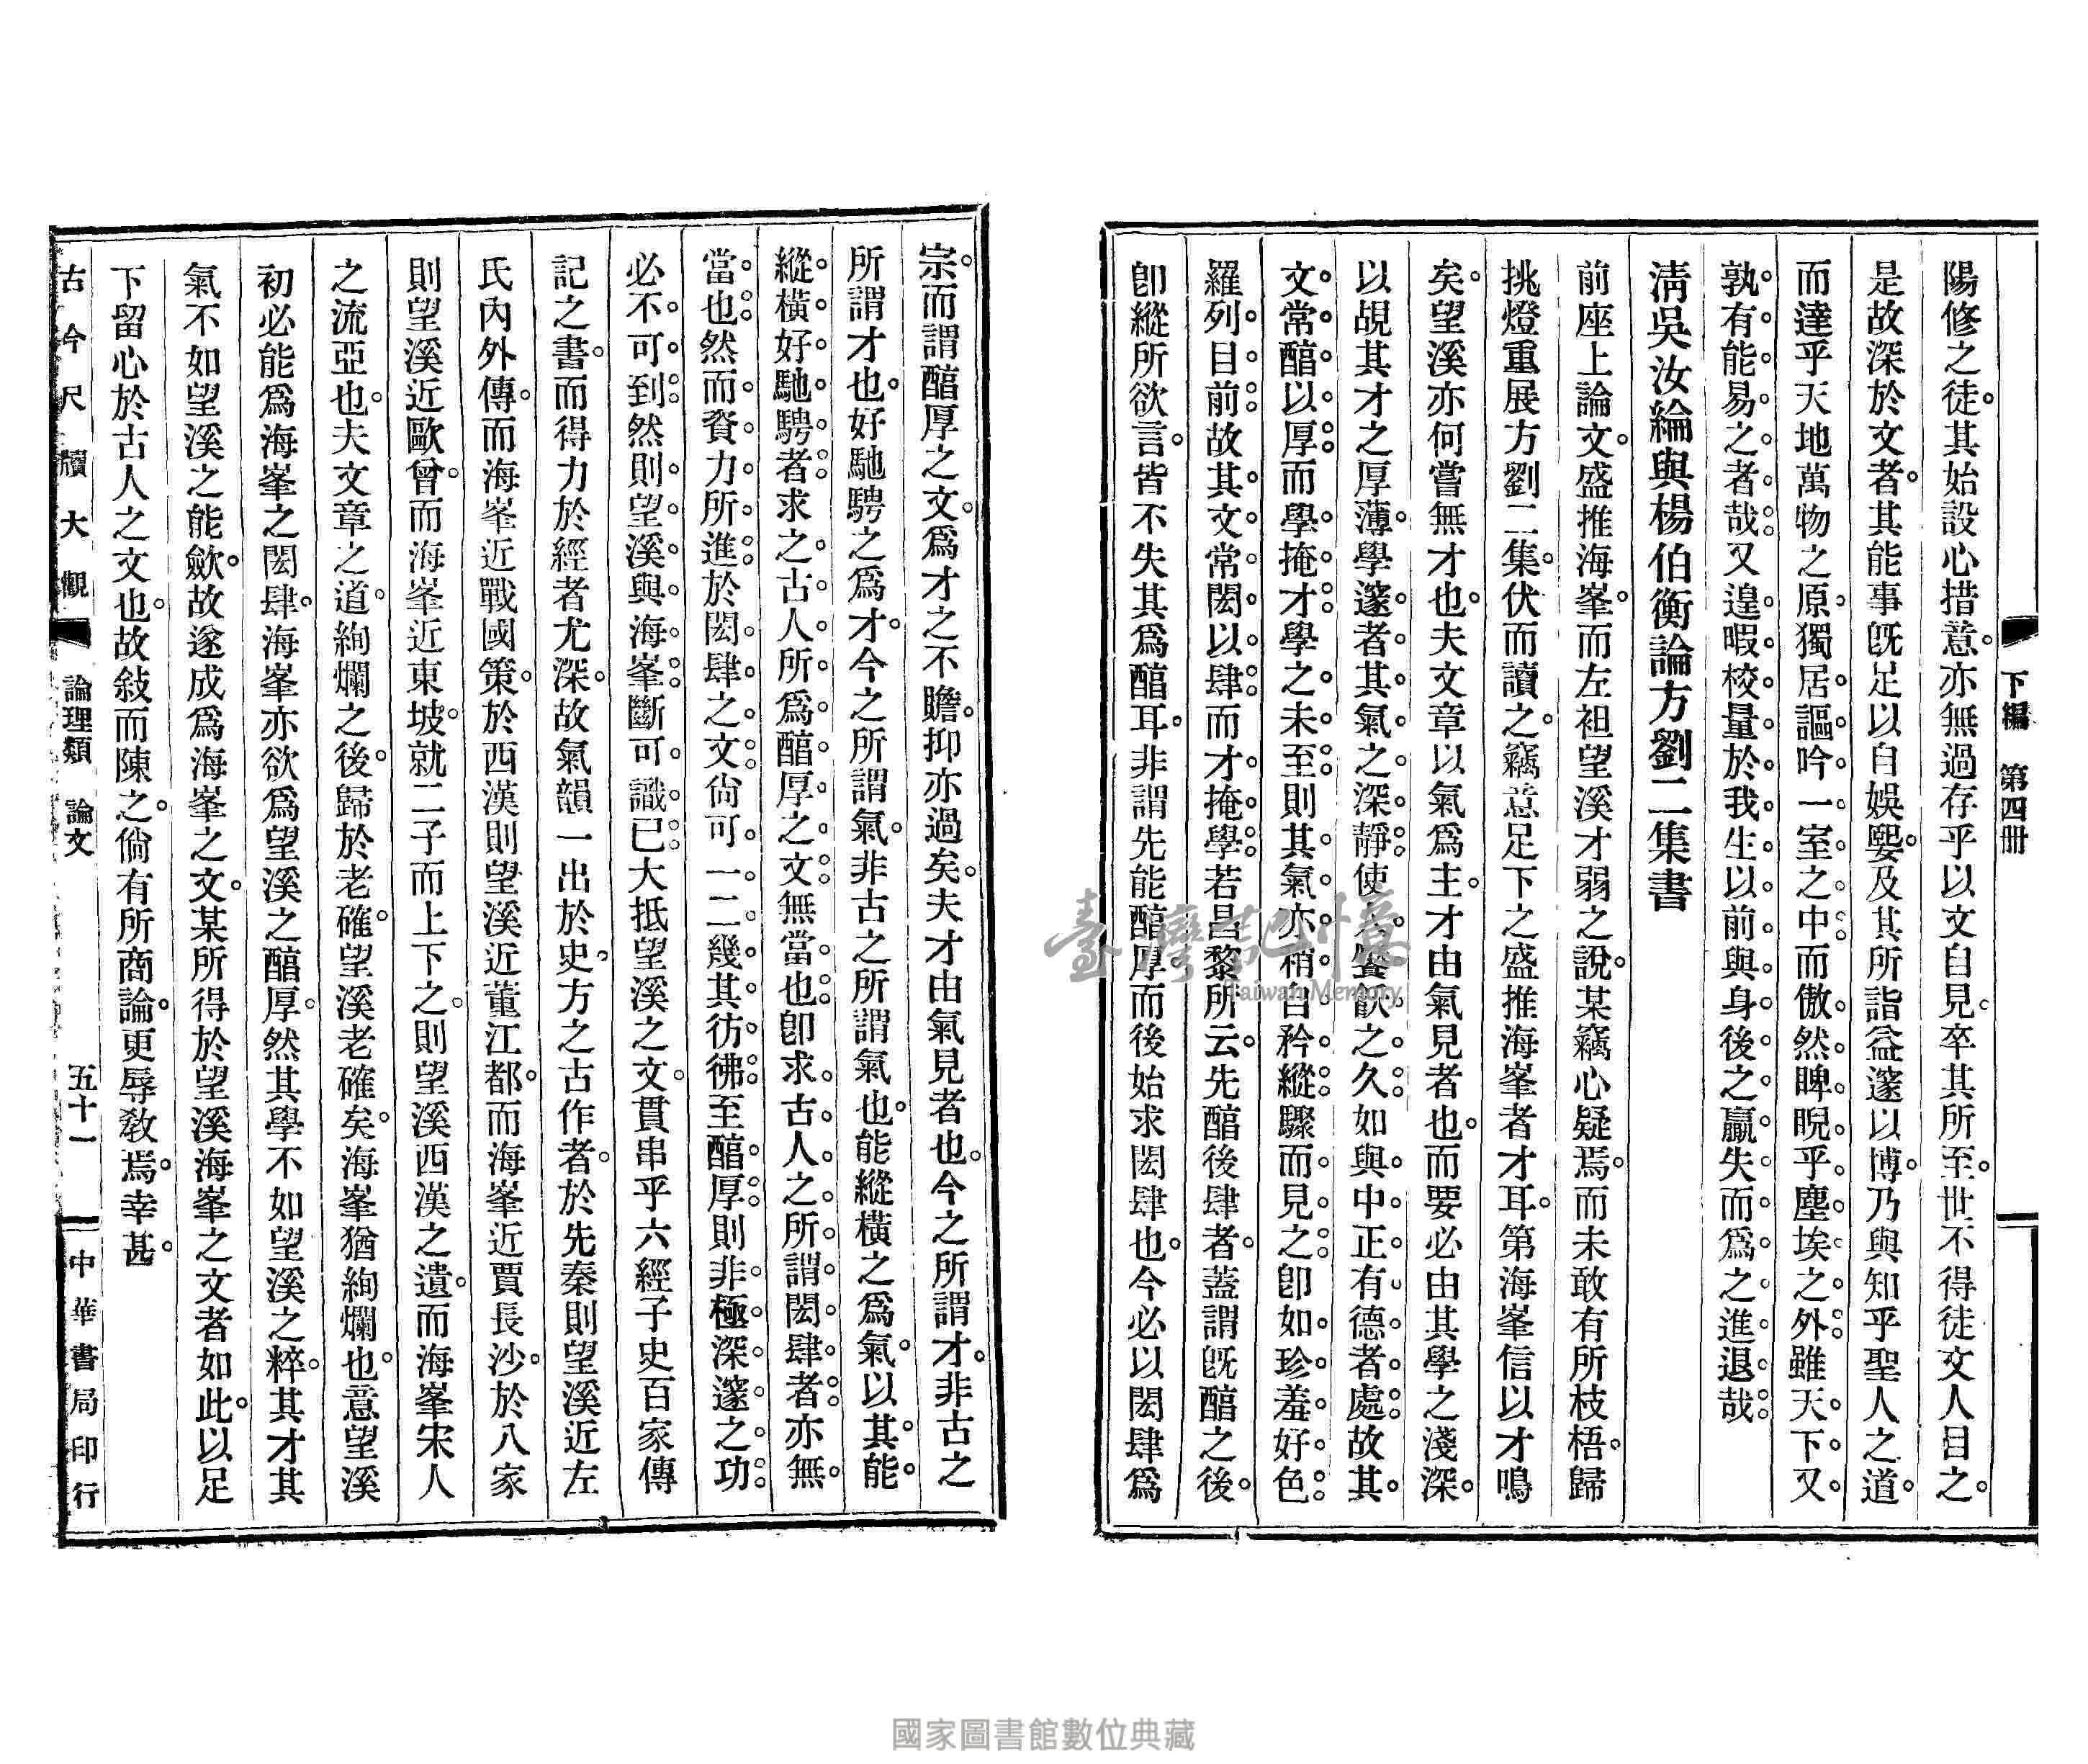 下編　第四冊
陽修之徒。其始設心措意。亦無過存乎以文自見。卒其所至。世不得徒文人目之。
是故深於文者。其能事旣足以自娛嬰。及其所詣益邃以博。乃與知乎聖人之道。
而達乎天地萬物之原。獨居謳吟一室之中。而傲然睥睨乎塵埃之外。雖天下又
孰有能易之者哉。又遑暇校量於我生以前。與身後之贏失而爲之進退哉。
淸吳汝綸與楊伯衡論方劉二集書
前座上論文。盛推海峯。而左袒望溪才弱之說。某竊心疑焉。而未敢有所枝梧。歸
挑燈重展方劉二集。伏而讀之。竊意足下之盛推海峯者才耳。第海峯信以才鳴
矣。望溪亦何嘗無才也。夫文章以氣爲主。才由氣見者也。而要必由其學之淺深。
以覘其才之厚薄。學邃者。其氣之深靜。使人饜飫之久。如與中正有德者處。故其
文常醕以厚。而學掩才。學之未至。則其氣亦稍自矜縱。驟而見之。卽如珍羞好色。
羅列目前。故其文常閎以肆。而才掩學。若昌黎所云。先醕後肆者。蓋謂旣醕之後。
卽縱所欲言。皆不失其爲醕耳。非謂先能醕厚而後始求閎肆也。今必以閎肆爲
宗。而謂醕厚之文。爲才之不贍。抑亦過矣。夫才由氣見者也。今之所謂才。非古之
所謂才也。好馳騁之爲才。今之所謂氣。非古之所謂氣也。能縱橫之爲氣。以其能
縱橫好馳騁者。求之古人所爲醕厚之文。無當也。卽求古人之所謂閎肆者。亦無
當也。然而資力所進。於閎肆之文。尙可一二幾其彷彿。至醕厚則非極深邃之功
必不可到。然則望溪與海峯。斷可識已。大抵望溪之文。貫串乎六經子史百家傳
記之書。而得力於經者尤深。故氣韻一出於史。方之古作者。於先秦則望溪近左
氏內外傳。而海峯近戰國策。於西漢則望溪近董江都。而海峯近賈長沙。於八家
則望溪近歐曾。而海峯近東坡。就二子而上下之。則望溪西漢之遺。而海峯宋人
之流亞也。夫文章之道。絢爛之後。歸於老確。望溪老確矣。海峯猶絢爛也。意望溪
初必能爲海峯之閎肆。海峯亦欲爲望溪之醕厚。然其學不如望溪之粹。其才其
氣不如望溪之能歛。故遂成爲海峯之文。某所得於望溪海峯之文者如此。以足
下留心於古人之文也。故敍而陳之。倘有所商論。更辱敎焉。幸甚。
古今尺牘大觀　論理類　論文　五十一　中華書局印行
臺灣記憶
Taiwan Memory
國家圖書館數位典藏